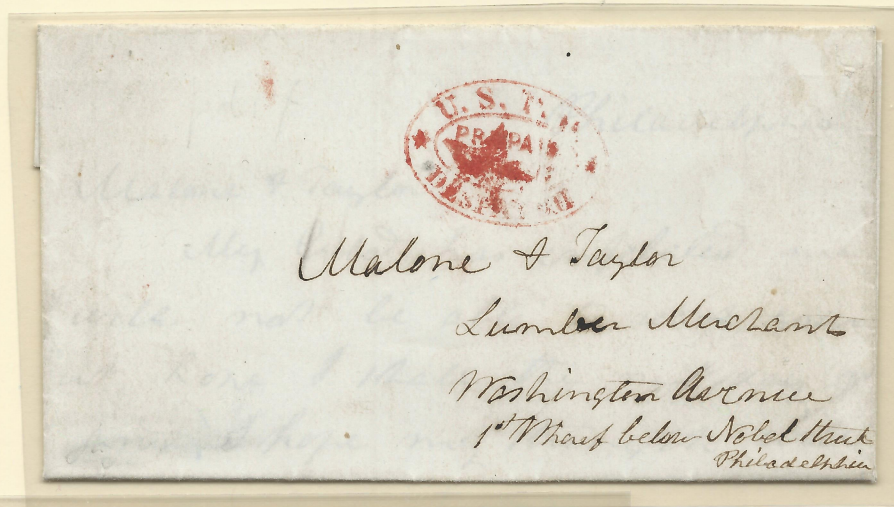 U. S. P.
PREPAI
DISPATCH
Malone & Taylor
Lumber Merchants
Washington Avenue
1st Wharf below Nobel Street
Philadelphia